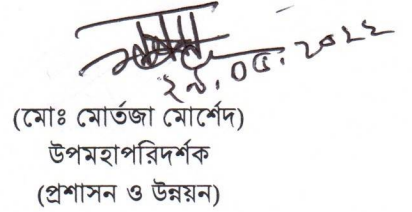 ২৯.০৫.২০২২
(মোঃ মোর্তজা মোর্শেদ)
উপমহাপরিদর্শক
(প্রশাসন ও উন্নয়ন)